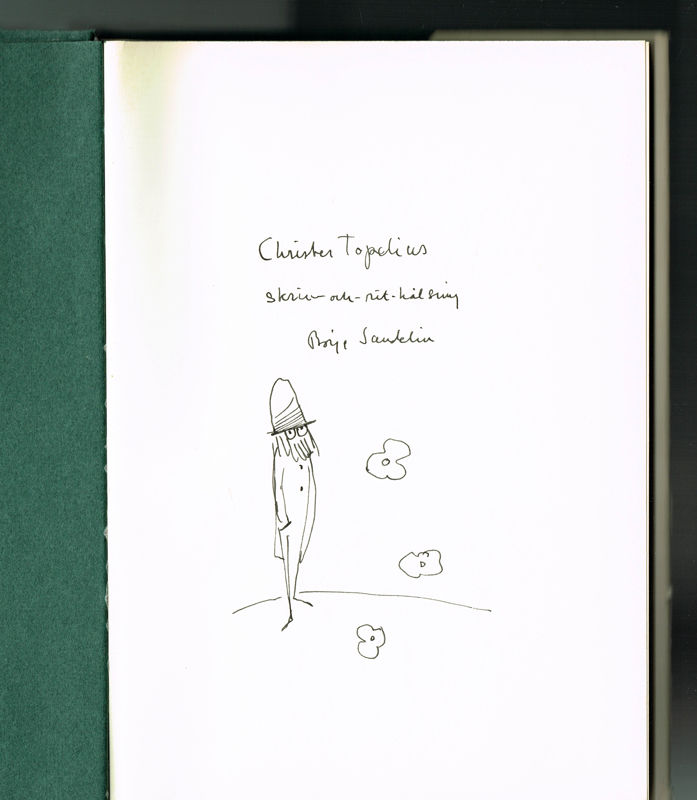 Christer Topelius
skriv-och-rit-hälsning
Börje Sandelin